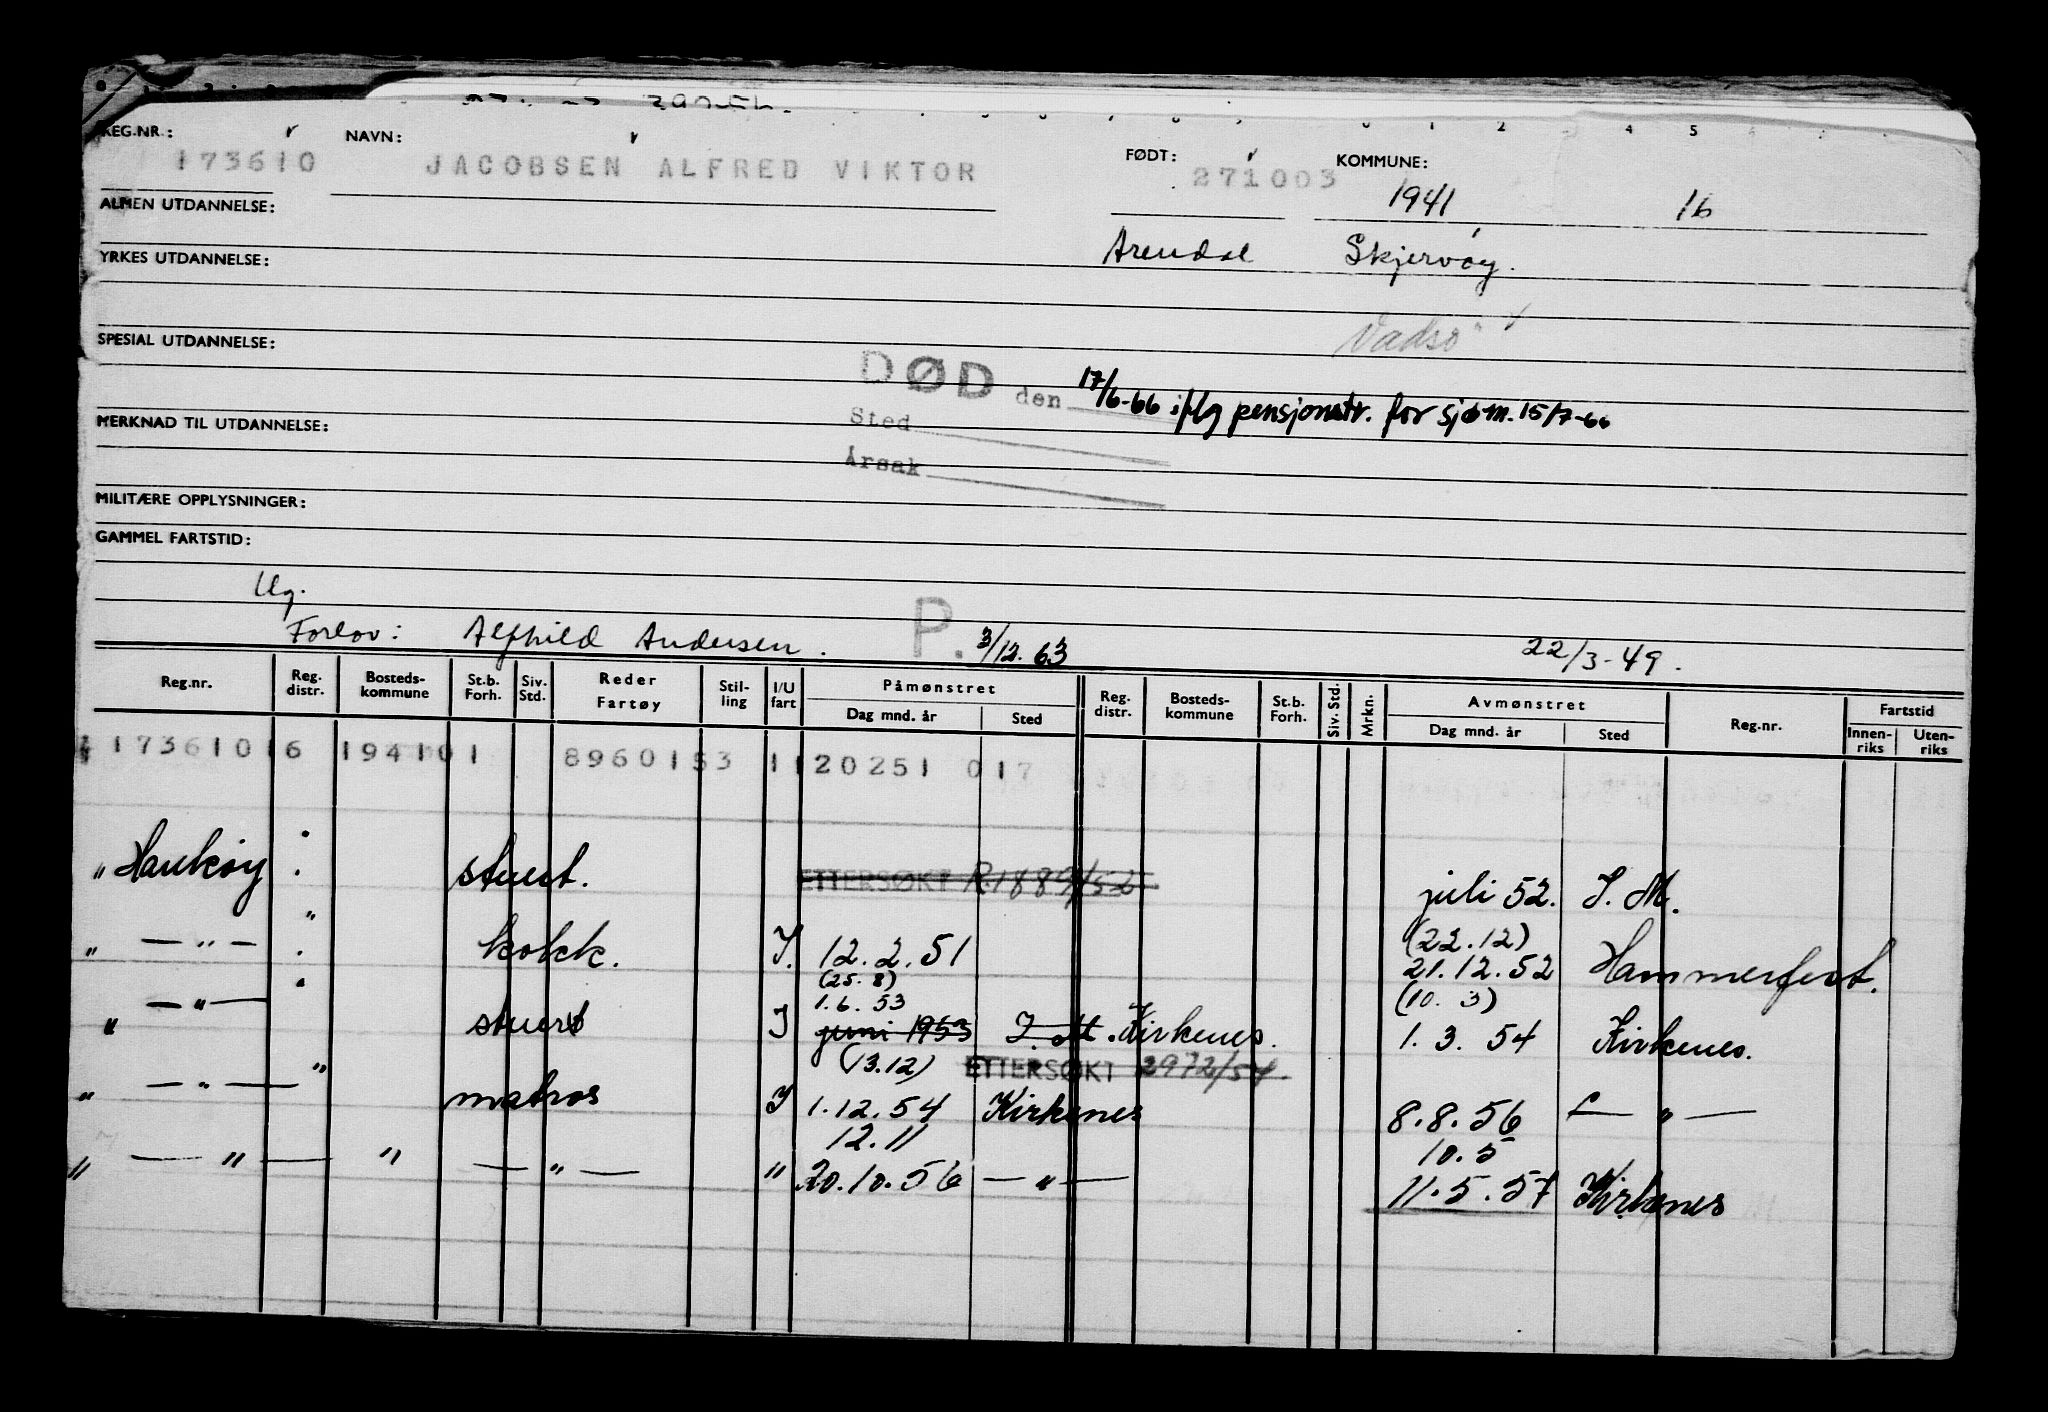 REG.NR.: NAVN: FØDT: KOMMUNE:
173610 JACOBSEN ALFRED VIKTOR 271003
1941 16
ALMEN UTDANNELSE:
Arendal Skjervøy.
YRKES UTDANNELSE:
Vadsø
SPESIAL UTDANNELSE:
DØD den 17/6-66 iflg pensjonstr. for sjøm. 15/7-66
Sted
MERKNAD TIL UTDANNELSE:
Årsak
MILITÆRE OPPLYSNINGER:
GAMMEL FARTSTID:
Ug.
Forlov: Alfhild Andersen. P. 3/12.63 22/3-49.
Reg.nr. Reg. distr. Bosteds-kommune St.b. Forh. Siv. Std. Reder Fartøy Stil-ling I/U fart Påmønstret Dag mnd. år Sted Reg. distr. Bosteds-kommune St.b. Forh. Siv. Std. Mrkn. Avmønstret Dag mnd. år Sted Reg.nr. Fartstid Innen-riks Uten-riks
173610 6 1941 01 8960153 1 120251 017
" Haukøy stuert. ETTERSØKT R.1889/52 juli 52. I. M.
(22.12)
" — " — kokk. I. 12.2.51 21.12.52 Hammerfest.
(25.8) (10.3)
1.6.53
" — " — stuert I juni 1953 I. M. Kirkenes. 1.3.54 Kirkenes.
(13.12) ETTERSØKT 2972/54
" — " — matros I 1.12.54 Kirkenes 8.8.56 — " —
12.11 10.5
" — " — " — " — " 20.10.56 — " — 11.5.57 Kirkenes